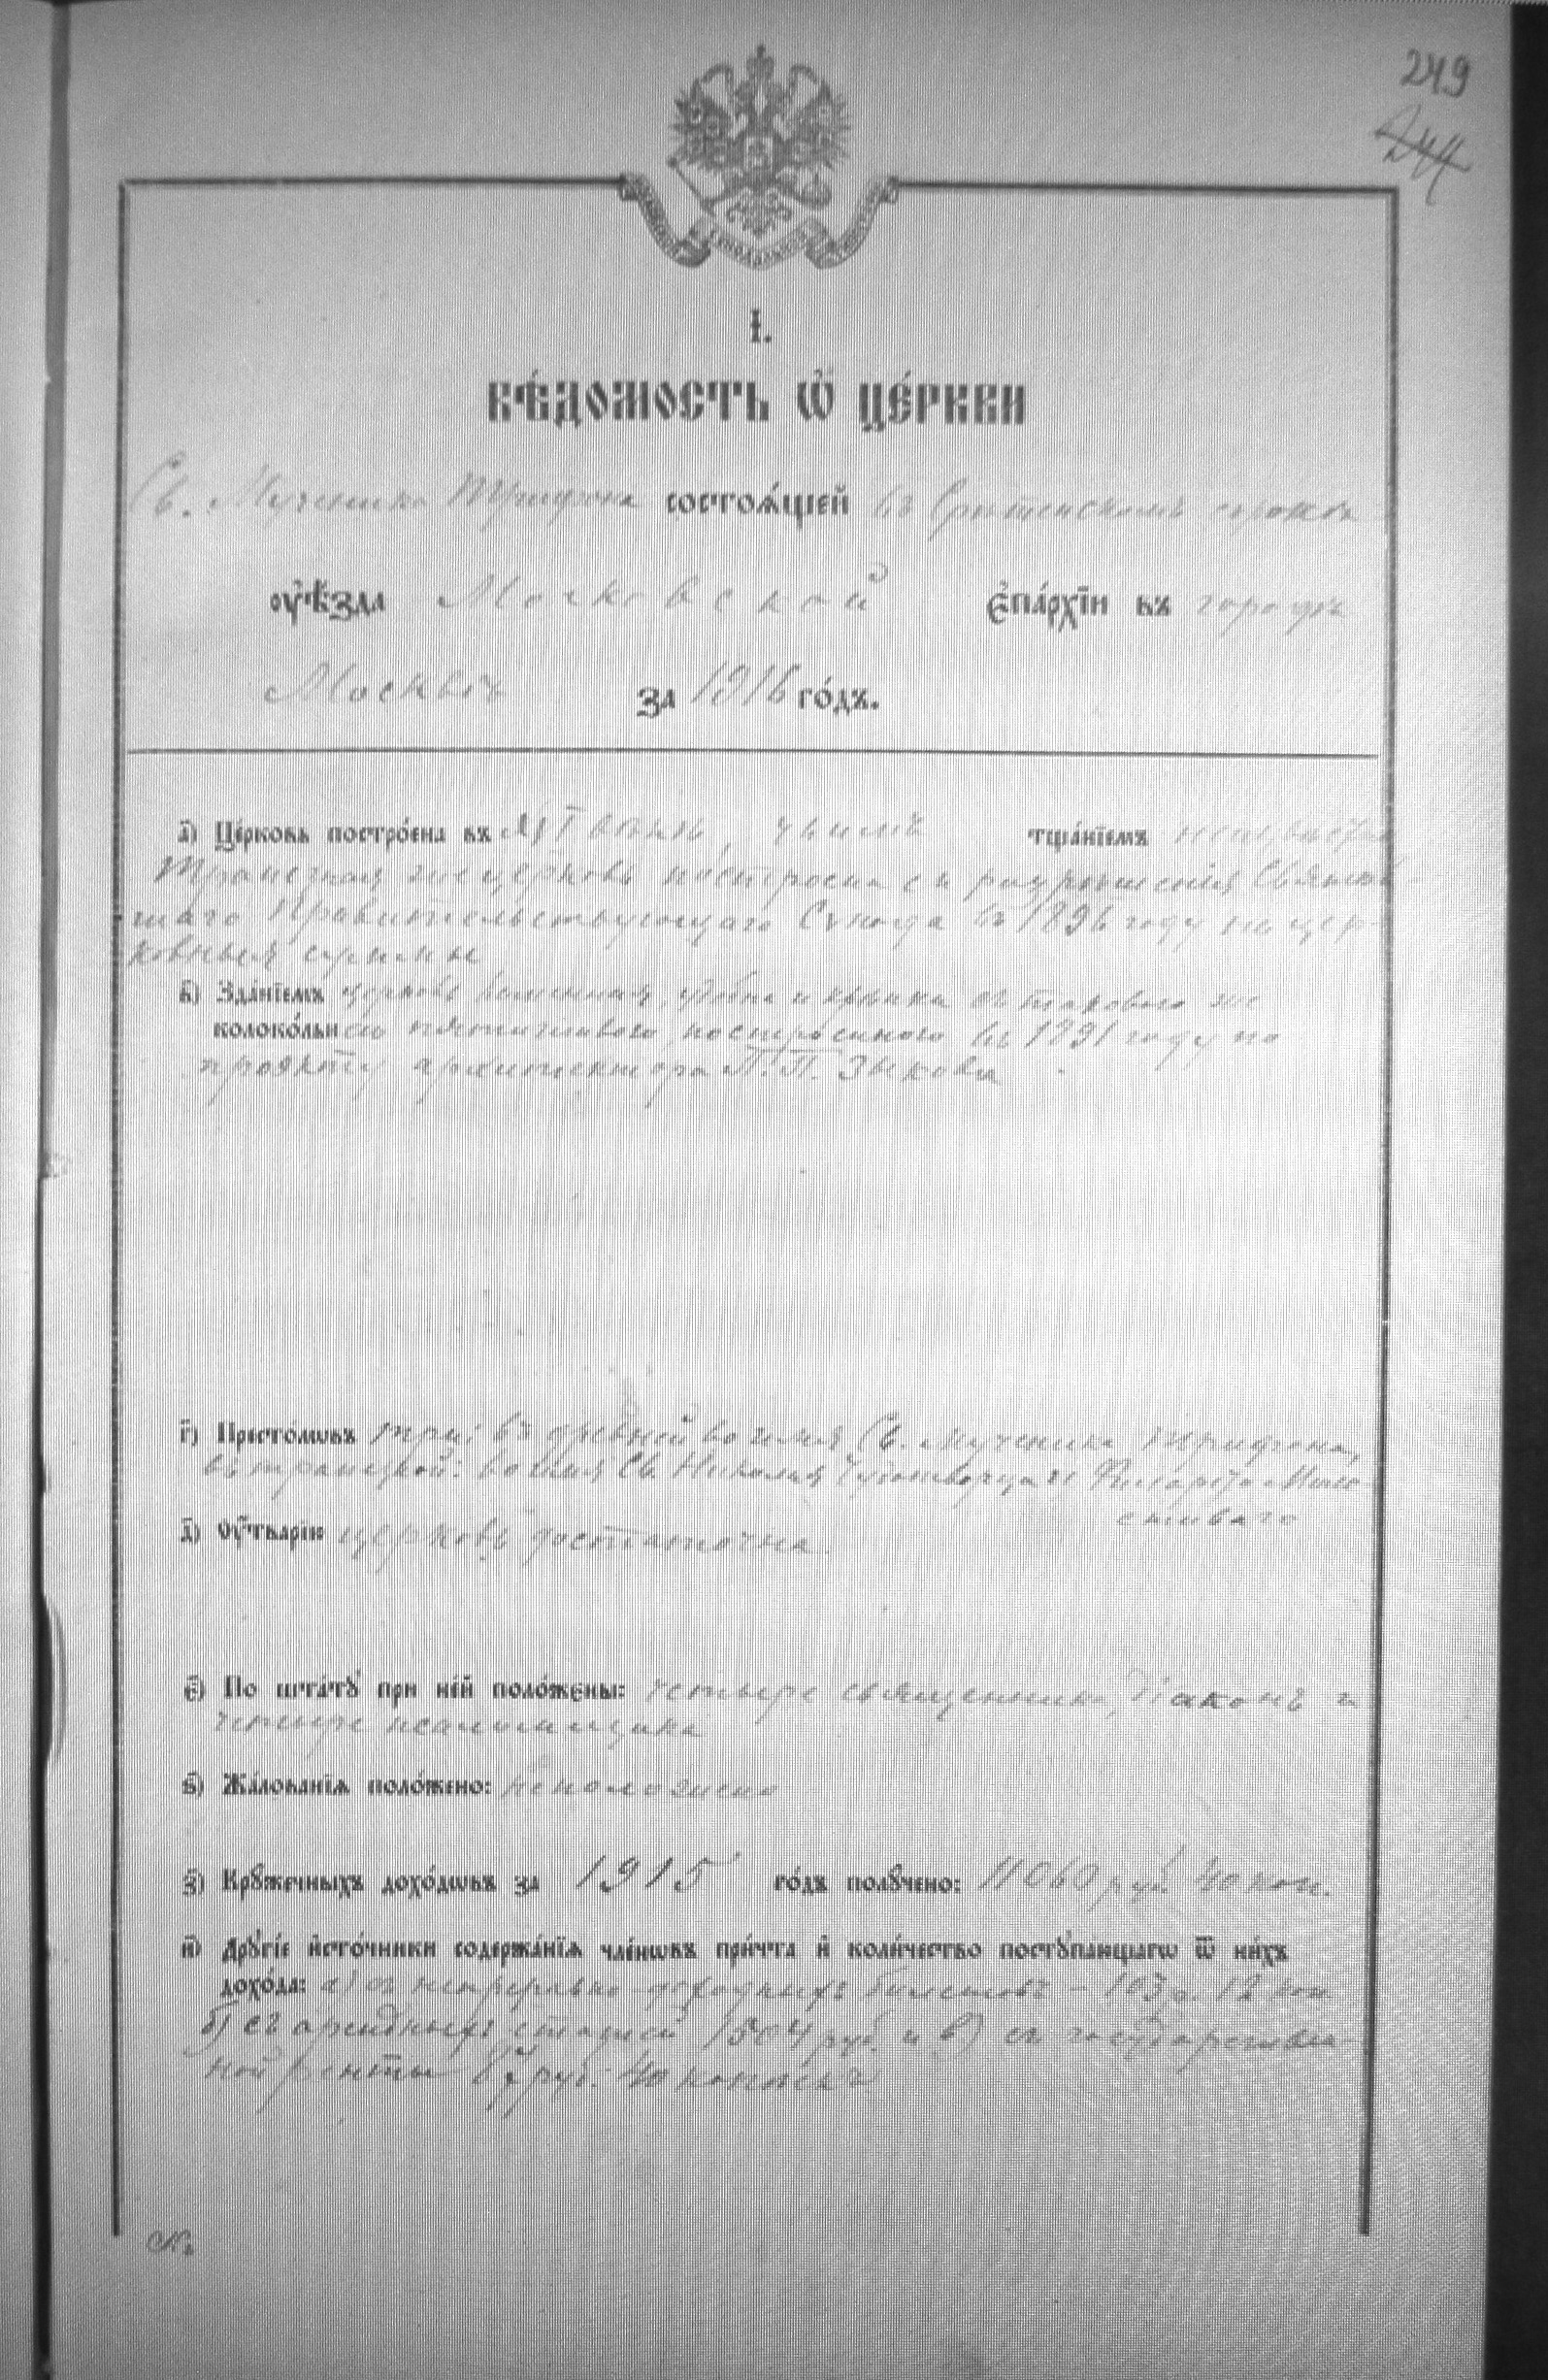 249
244
І.
ВѢ́ДОМОСТЬ Ѽ ЦЕ́РКВИ
Св. Мученика Трифона состоѧ́щей въ Срѣтенскомъ сорокѣ
оу҆ѣ́зда Московской є҆па́рхїи въ городѣ
Москвѣ за 1916 го́дъ.
а҃) Це́рковь постро́ена въ вѣкѣ, тща́нїемъ
Трапезная же церковь построена съ разрѣшенія Святѣй-
шаго Правительствующаго Сѵнода въ 1896 году на цер-
ковныя суммы
в҃) Зда́нїемъ церковь каменная, и крѣпка съ таковою же
колоко́льнею построенною въ 1891 году по
проэкту архитектора П. П. Зыкова
г҃) Престо́лѡвъ три: въ во имя Св. Мученика Трифона,
въ трапезной: во имя Св. Николая Чудотворца и Мило-
стиваго
д҃) Оу҆́тварїю церковь достаточна.
є҃) По шта́тꙋ при не́й поло́жены: четыре священника, діаконъ и
четыре псаломщика
ѕ҃) Жа́лованїѧ поло́жено: не положено
з҃) Крꙋ́жечныхъ дохо́дѡвъ за 1915 го́дъ полꙋ́чено: 11060 руб. 40 коп.
и҃) Дрꙋгі́е и҆сто́чники содержа́нїѧ чле́нѡвъ при́чта и҆ коли́чество постꙋпа́ющагѡ ѿ ни́хъ
дохо́да: а) съ непрерывно-доходныхъ билетовъ – 103 р. 12 коп.
б) съ арендныхъ статей 1504 руб. и в) съ государствен-
ной ренты руб. 40 копѣекъ.